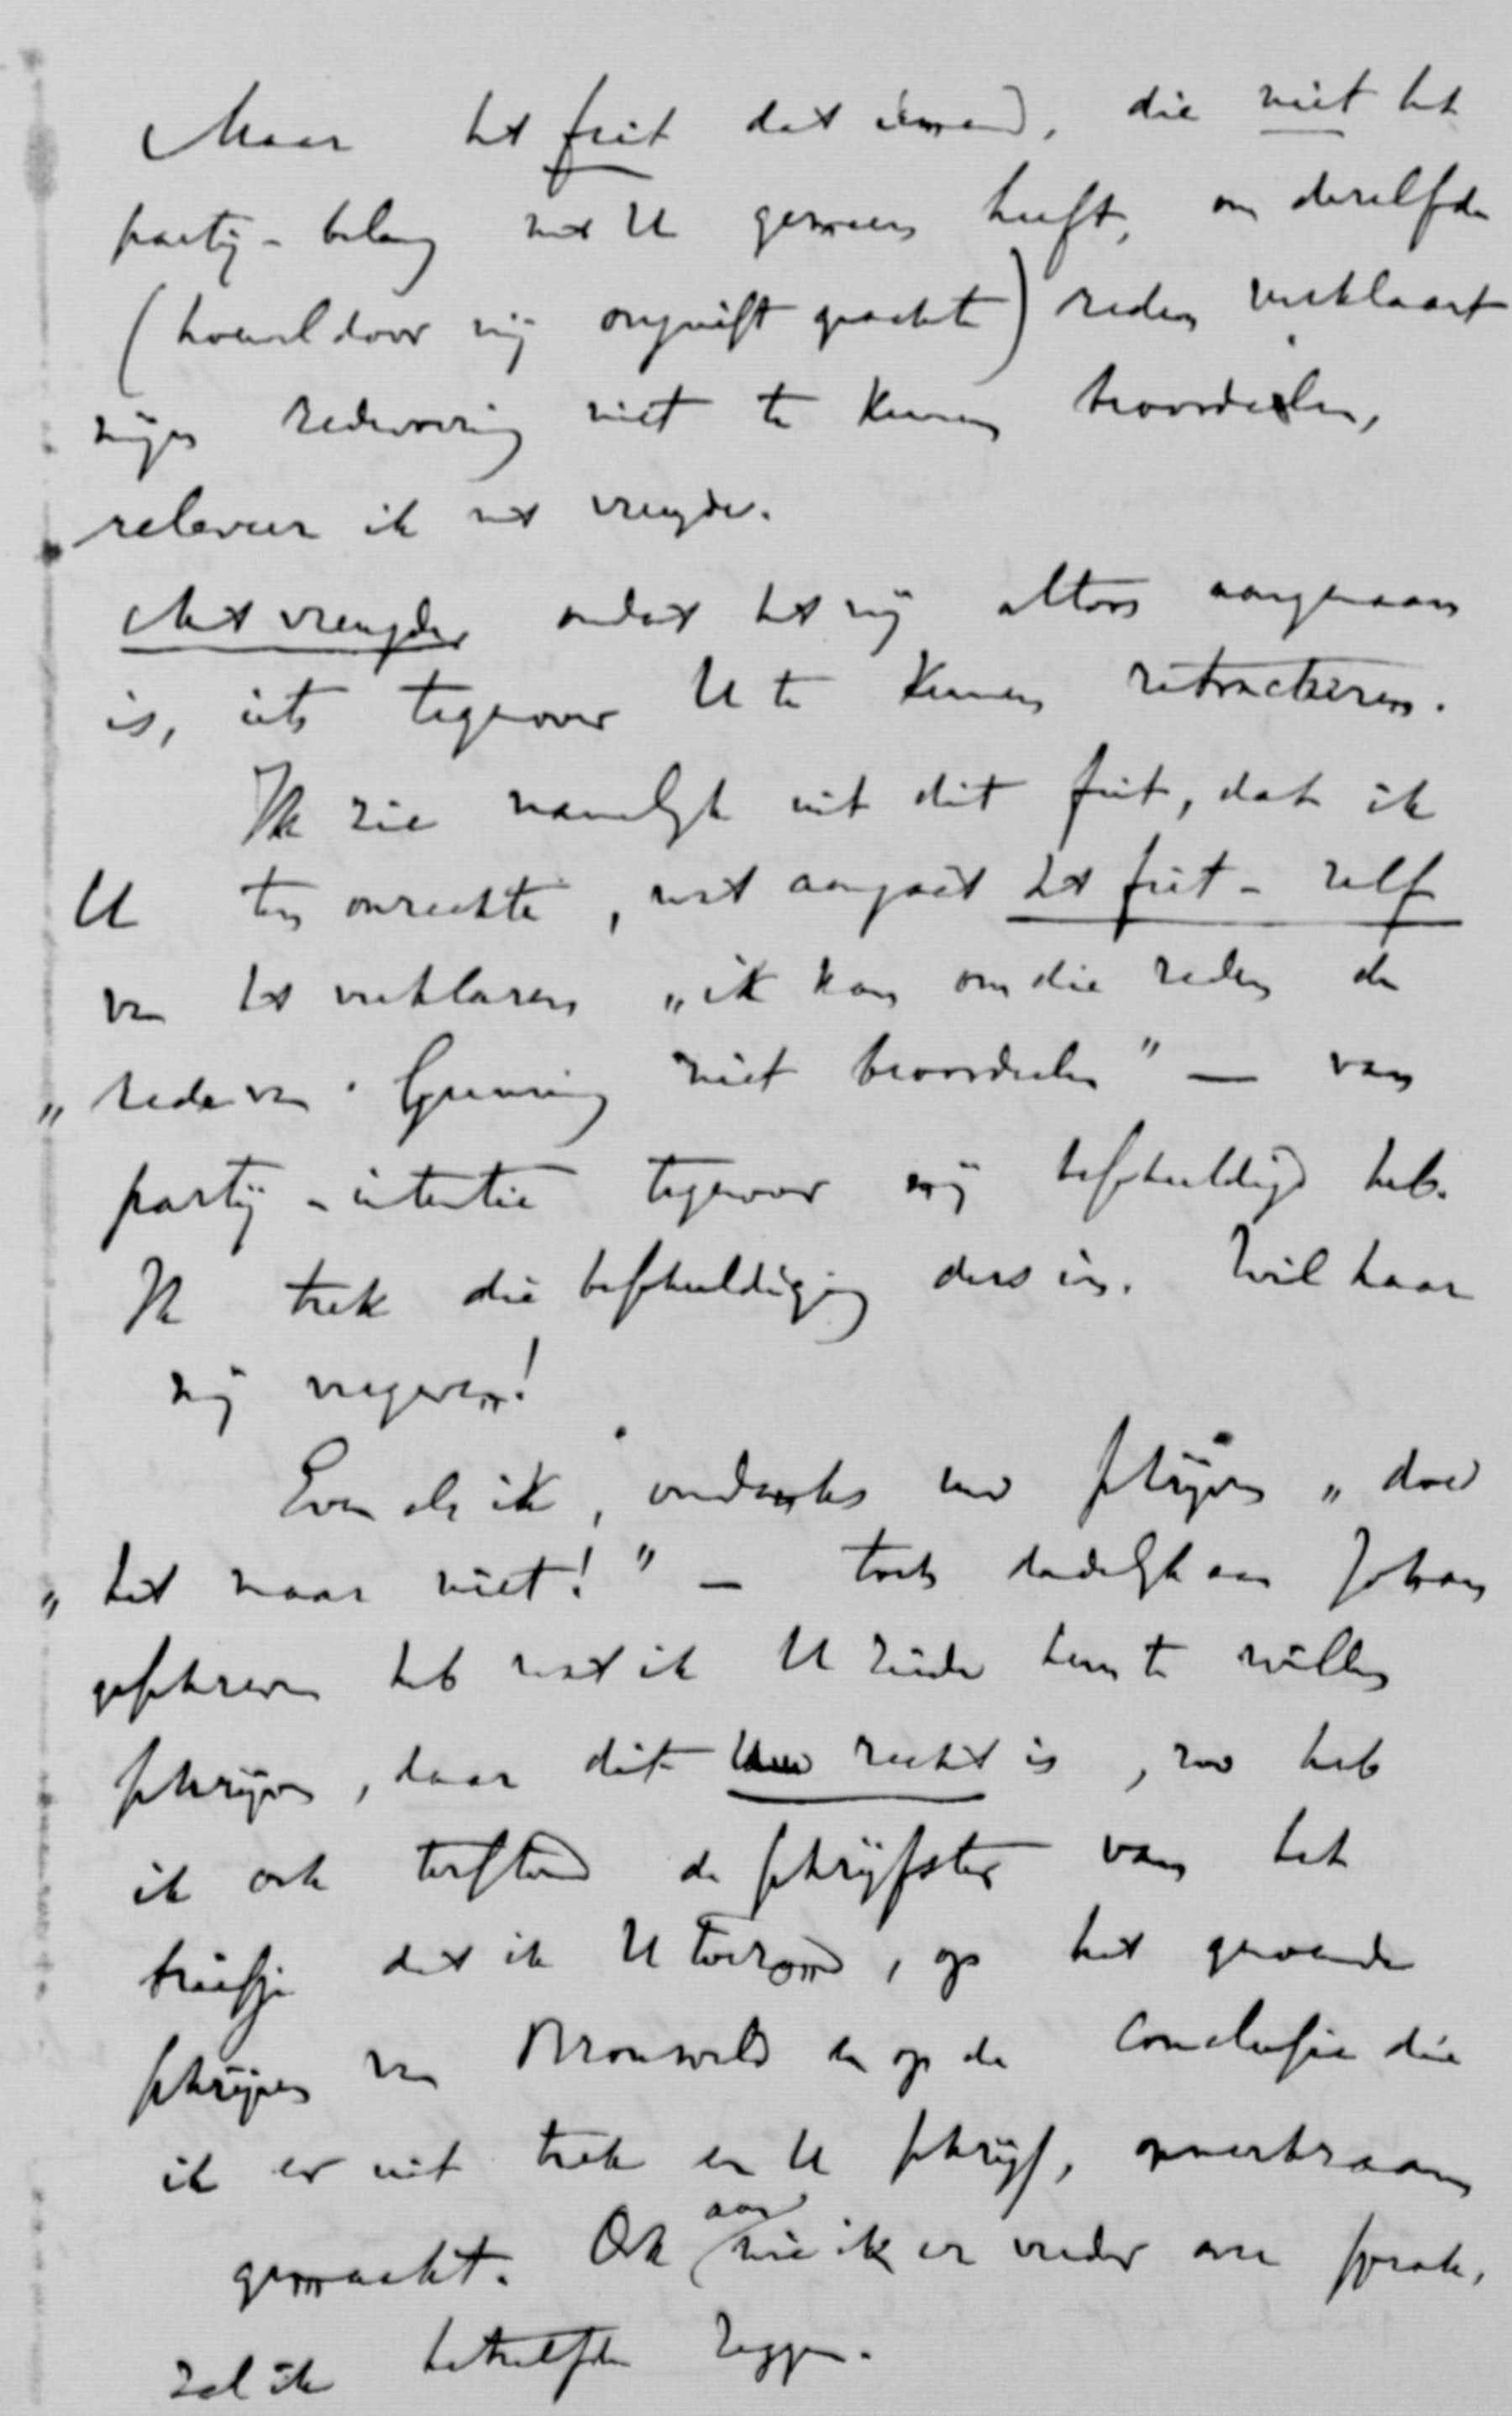 Maar het feit dat iemand, die niet het
partij-belang met U gemeen heeft, om dezelfde
(hoewel door mij ongerijmd geachte) reden verklaart
mijne redevoering niet te kunnen beoordeelen,
releveer ik met vreugde.
Met vreugde omdat het mij altoos aangenaam
is, iets tegenover U te kunnen retracteeren.
Ik zie namelijk uit dit feit, dat ik
U ten onrechte, wat aangaat het feit-zelf
van het verklaren „ik kan om die reden de
„rede van Gunning niet beoordeelen" — van
partij-intentie tegenover mij beschuldigd heb.
Ik trek die beschuldiging dus in. Wil haar
mij vergeven!
Even als ik, ondanks uw schrijven „doe
„het maar niet!" — toch dadelijk aan Johan
geschreven heb wat ik U zeide hem te willen
schrijven, daar dit Uw recht is, zoo heb
ik ook terstond de schrijfster van het
briefje dat ik U toezond, op het gemelde
schrijven van Bronsveld en op de conclusie die
ik er uit trek en U schrijf, opmerkzaam
gemaakt. Ook aan wie ik er verder over sprak,
zal ik hetzelfde zeggen.